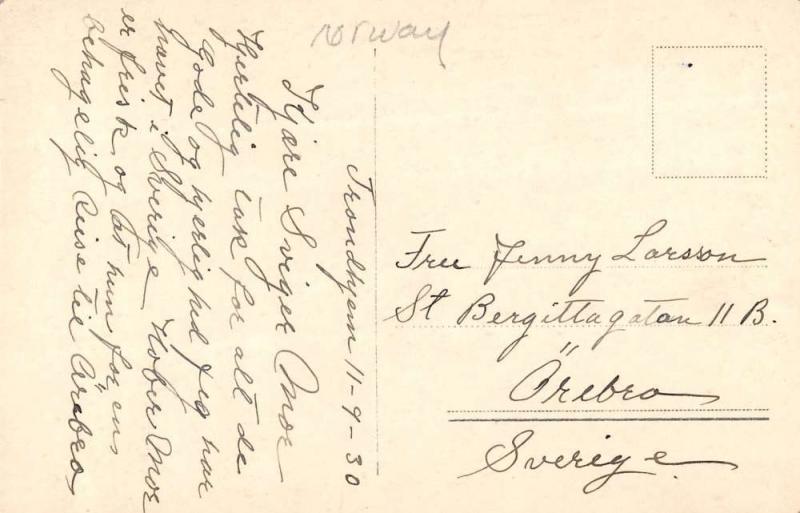 Norway
Trondhjem 11-9-30
Kjære Sviger Mor
Hjertelig tak for alt de
gode og kjerlighed Jeg har
havet i Sverige Håber Mor
er frisk og at hun for ens
behagelig Reise til Ørebro
Fru Jenny Larsson
St Bergittagatan 11 B.
Örebro
Sverige